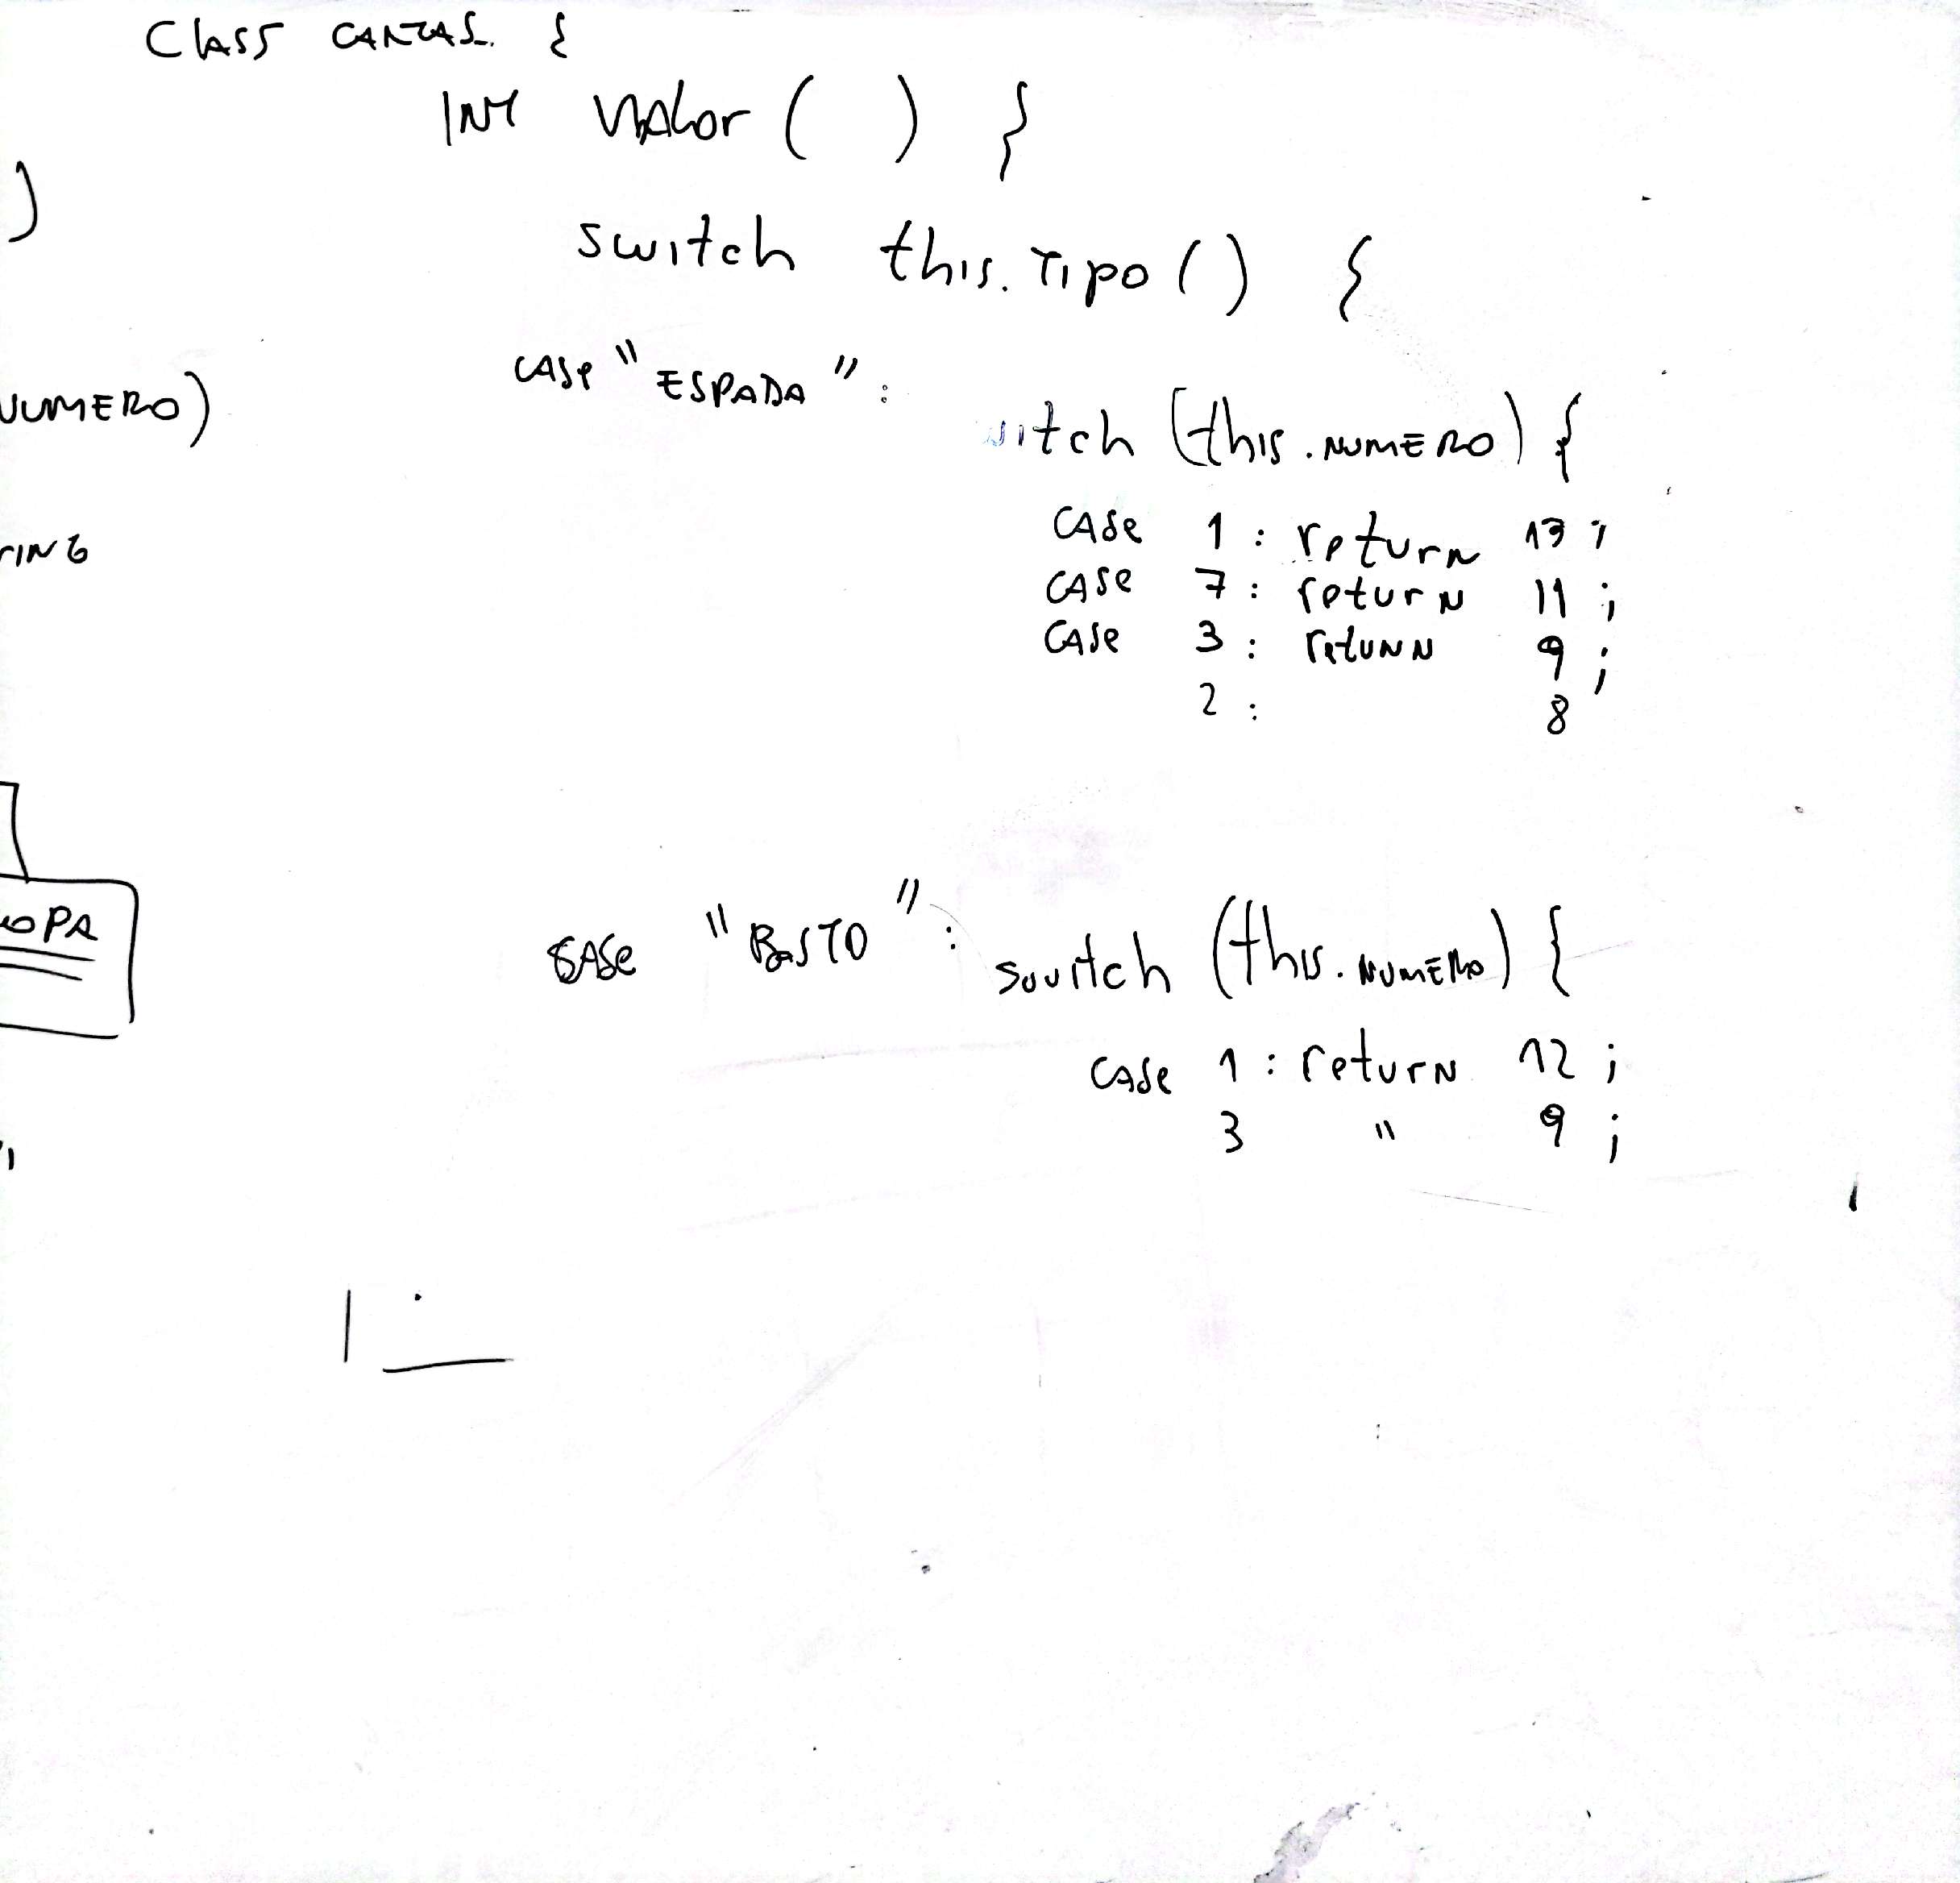 Class CARTAS {
INT VALOR ( ) }
)
switch this.TIPO () {
CASE "ESPADA" :
NUMERO)
witch (this.NUMERO) {
CASE 1 : return 13 ;
RING
CASE 7 : return 11 ;
CASE 3 : return 9 ;
2 : 8
OPA
CASE "BASTO" : switch (this.NUMERO) {
CASE 1 : return 12 ;
3 " 9 ;